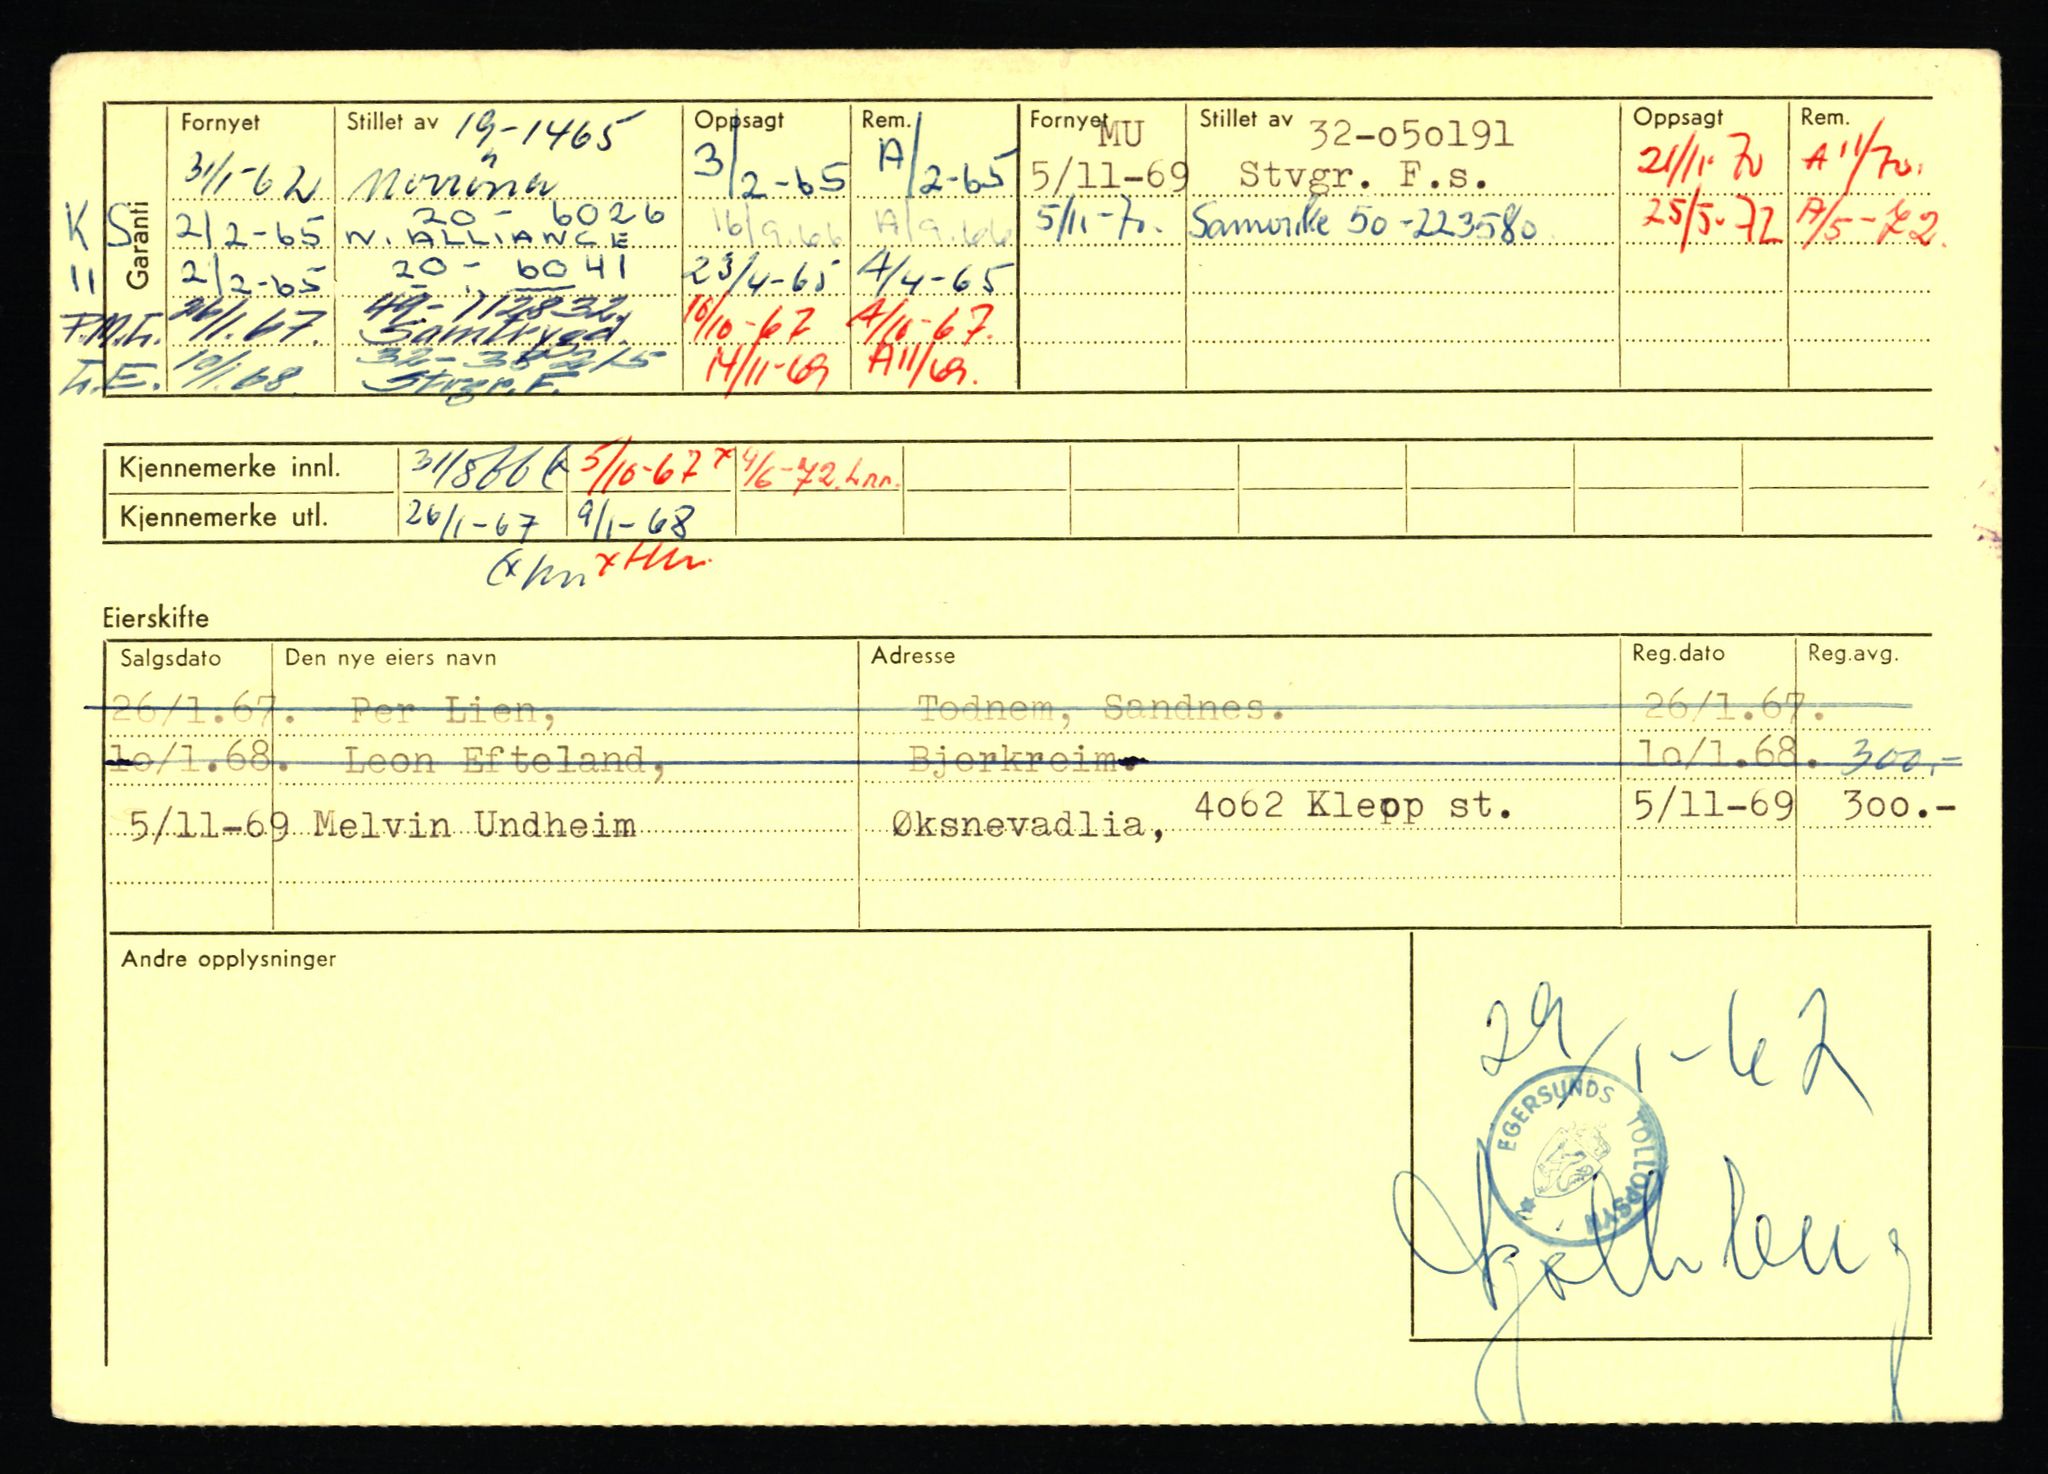 Fornyet Stillet av 19-1465 Oppsagt Rem. Fornyet MU Stillet av 32-050191 Oppsagt Rem.
31/1-62 Norrøna 3/2-65 A/2-65 5/11-69 Stvgr. F.s. 21/11-70 A 11/70.
Garanti
K S 2/2-65 20 - 6026 N. ALLIANCE 16/9.66 A/9.66 5/11-70. Samvirke 50-223580 25/5-72 A/5-72.
11 2/2-65 20 - 6041 23/4-65 A/4-65
P.M.L. 26/1.67. 49-112832. Samtrygd. 10/10-67 A/10-67.
L.E. 10/1.68. Stvgr. F. 14/11-69 A11/69.
Kjennemerke innl. 31/8 66 (x 5/10-67 x 9/6-72. Lnn.
Kjennemerke utl. 26/1-67 9/1-68
Eierskifte
Salgsdato Den nye eiers navn Adresse Reg.dato Reg.avg.
26/1.67. Per Lien, Todnem, Sandnes. 26/1.67.
10/1.68. Leon Efteland, Bjerkreim. 10/1.68. 300.-
5/11-69 Melvin Undheim Øksnevadlia, 4062 Klepp st. 5/11-69 300.-
Andre opplysninger
29/1-62
EGERSUNDS TOLLOPPSYN